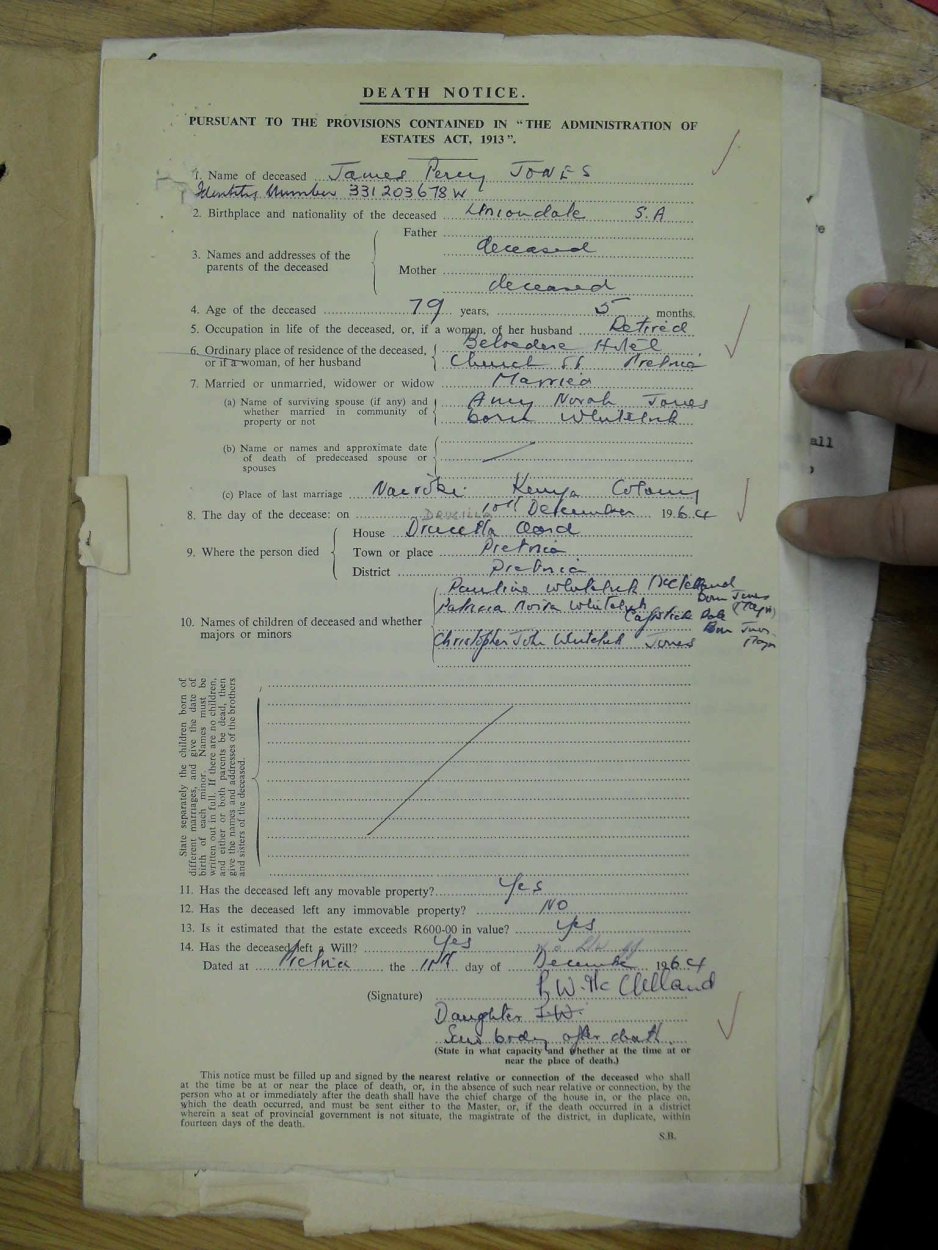 DEATH NOTICE.
PURSUANT TO THE PROVISIONS CONTAINED IN "THE ADMINISTRATION OF
ESTATES ACT, 1913".
1. Name of deceased James Percy JONES
Identity Number 331203678W
2. Birthplace and nationality of the deceased Uniondale S.A
3. Names and addresses of the parents of the deceased
Father deceased
Mother deceased
4. Age of the deceased 79 years, 5 months.
5. Occupation in life of the deceased, or, if a woman, of her husband Retired
6. Ordinary place of residence of the deceased, Belvedere Hotel
or if a woman, of her husband Church St Pretoria
7. Married or unmarried, widower or widow Married
(a) Name of surviving spouse (if any) and Amy Norah Jones
whether married in community of born
property or not
(b) Name or names and approximate date
of death of predeceased spouse or
spouses
(c) Place of last marriage Nairobi Kenya Colony
8. The day of the decease: on 10th December 1964
9. Where the person died
House
Town or place Pretoria
District Pretoria
10. Names of children of deceased and whether
majors or minors
Pauline McClelland
born Jones
Patricia
Christopher John Jones
State separately the children born of
different marriages, and give the date of
birth of each minor. Names must be
written out in full. If there are no children,
and either or both parents be dead, then
give the names and addresses of the brothers
and sisters of the deceased.
11. Has the deceased left any movable property? Yes
12. Has the deceased left any immovable property? NO
13. Is it estimated that the estate exceeds R600-00 in value? yes
14. Has the deceased left a Will? Yes
Dated at Pretoria the day of December 1964
(Signature) P.W. McClelland
Daughter
body after death
(State in what capacity and whether at the time at or
near the place of death.)
This notice must be filled up and signed by the nearest relative or connection of the deceased who shall
at the time be at or near the place of death, or, in the absence of such near relative or connection, by the
person who at or immediately after the death shall have the chief charge of the house in, or the place on,
which the death occurred, and must be sent either to the Master, or, if the death occurred in a district
wherein a seat of provincial government is not situate, the magistrate of the district, in duplicate, within
fourteen days of the death.
S.B.
all